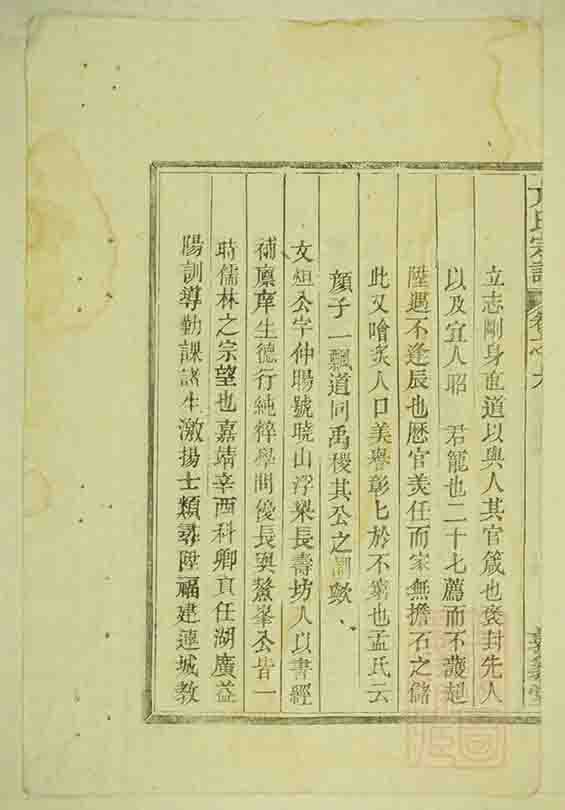 氏宗譜 卷之六
立志剛身直道以與人其官箴也褒封先人
以及宜人昭 君寵也二十七薦而不護起
陞遇不逢辰也歷官美任而家無擔石之儲
此又噲炙人口美譽彰匕於不窮也孟氏云
顏子一瓢道同禹稷其公之謂歟
文烜公字仲暘號曉山浮梁長壽坊人以書經
補廪庠生德行純粹學問優長與鰲峯公皆一
時儒林之宗望也嘉靖辛酉科鄉貢任湖廣益
陽訓導勤課諸生激揚士類尋陞福建連城教